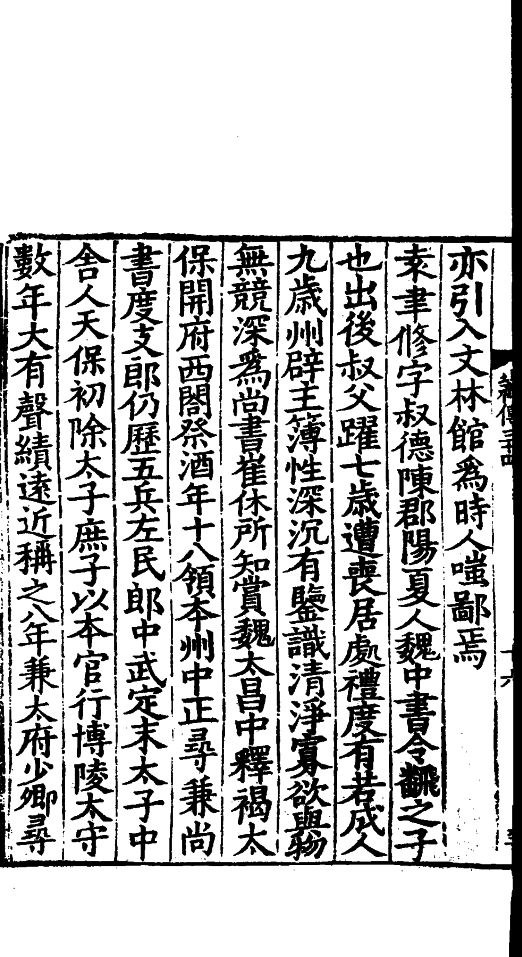 亦引入文林館為時人嗤鄙焉
袁聿修字叔德陳郡陽夏人魏中書令飜之子
也出後叔父躍七歲遭喪居處禮度有若成人
九歲州辟主簿性深沉有鑒識清淨寡欲與物
無競深為尚書崔休所知賞魏太昌中釋褐太
保開府西閤祭酒年十八領本州中正尋兼尚
書度支郎仍歷五兵左民郎中武定末太子中
舍人天保初除太子庶子以本官行博陵太守
數年大有聲績遠近稱之八年兼太府少卿尋